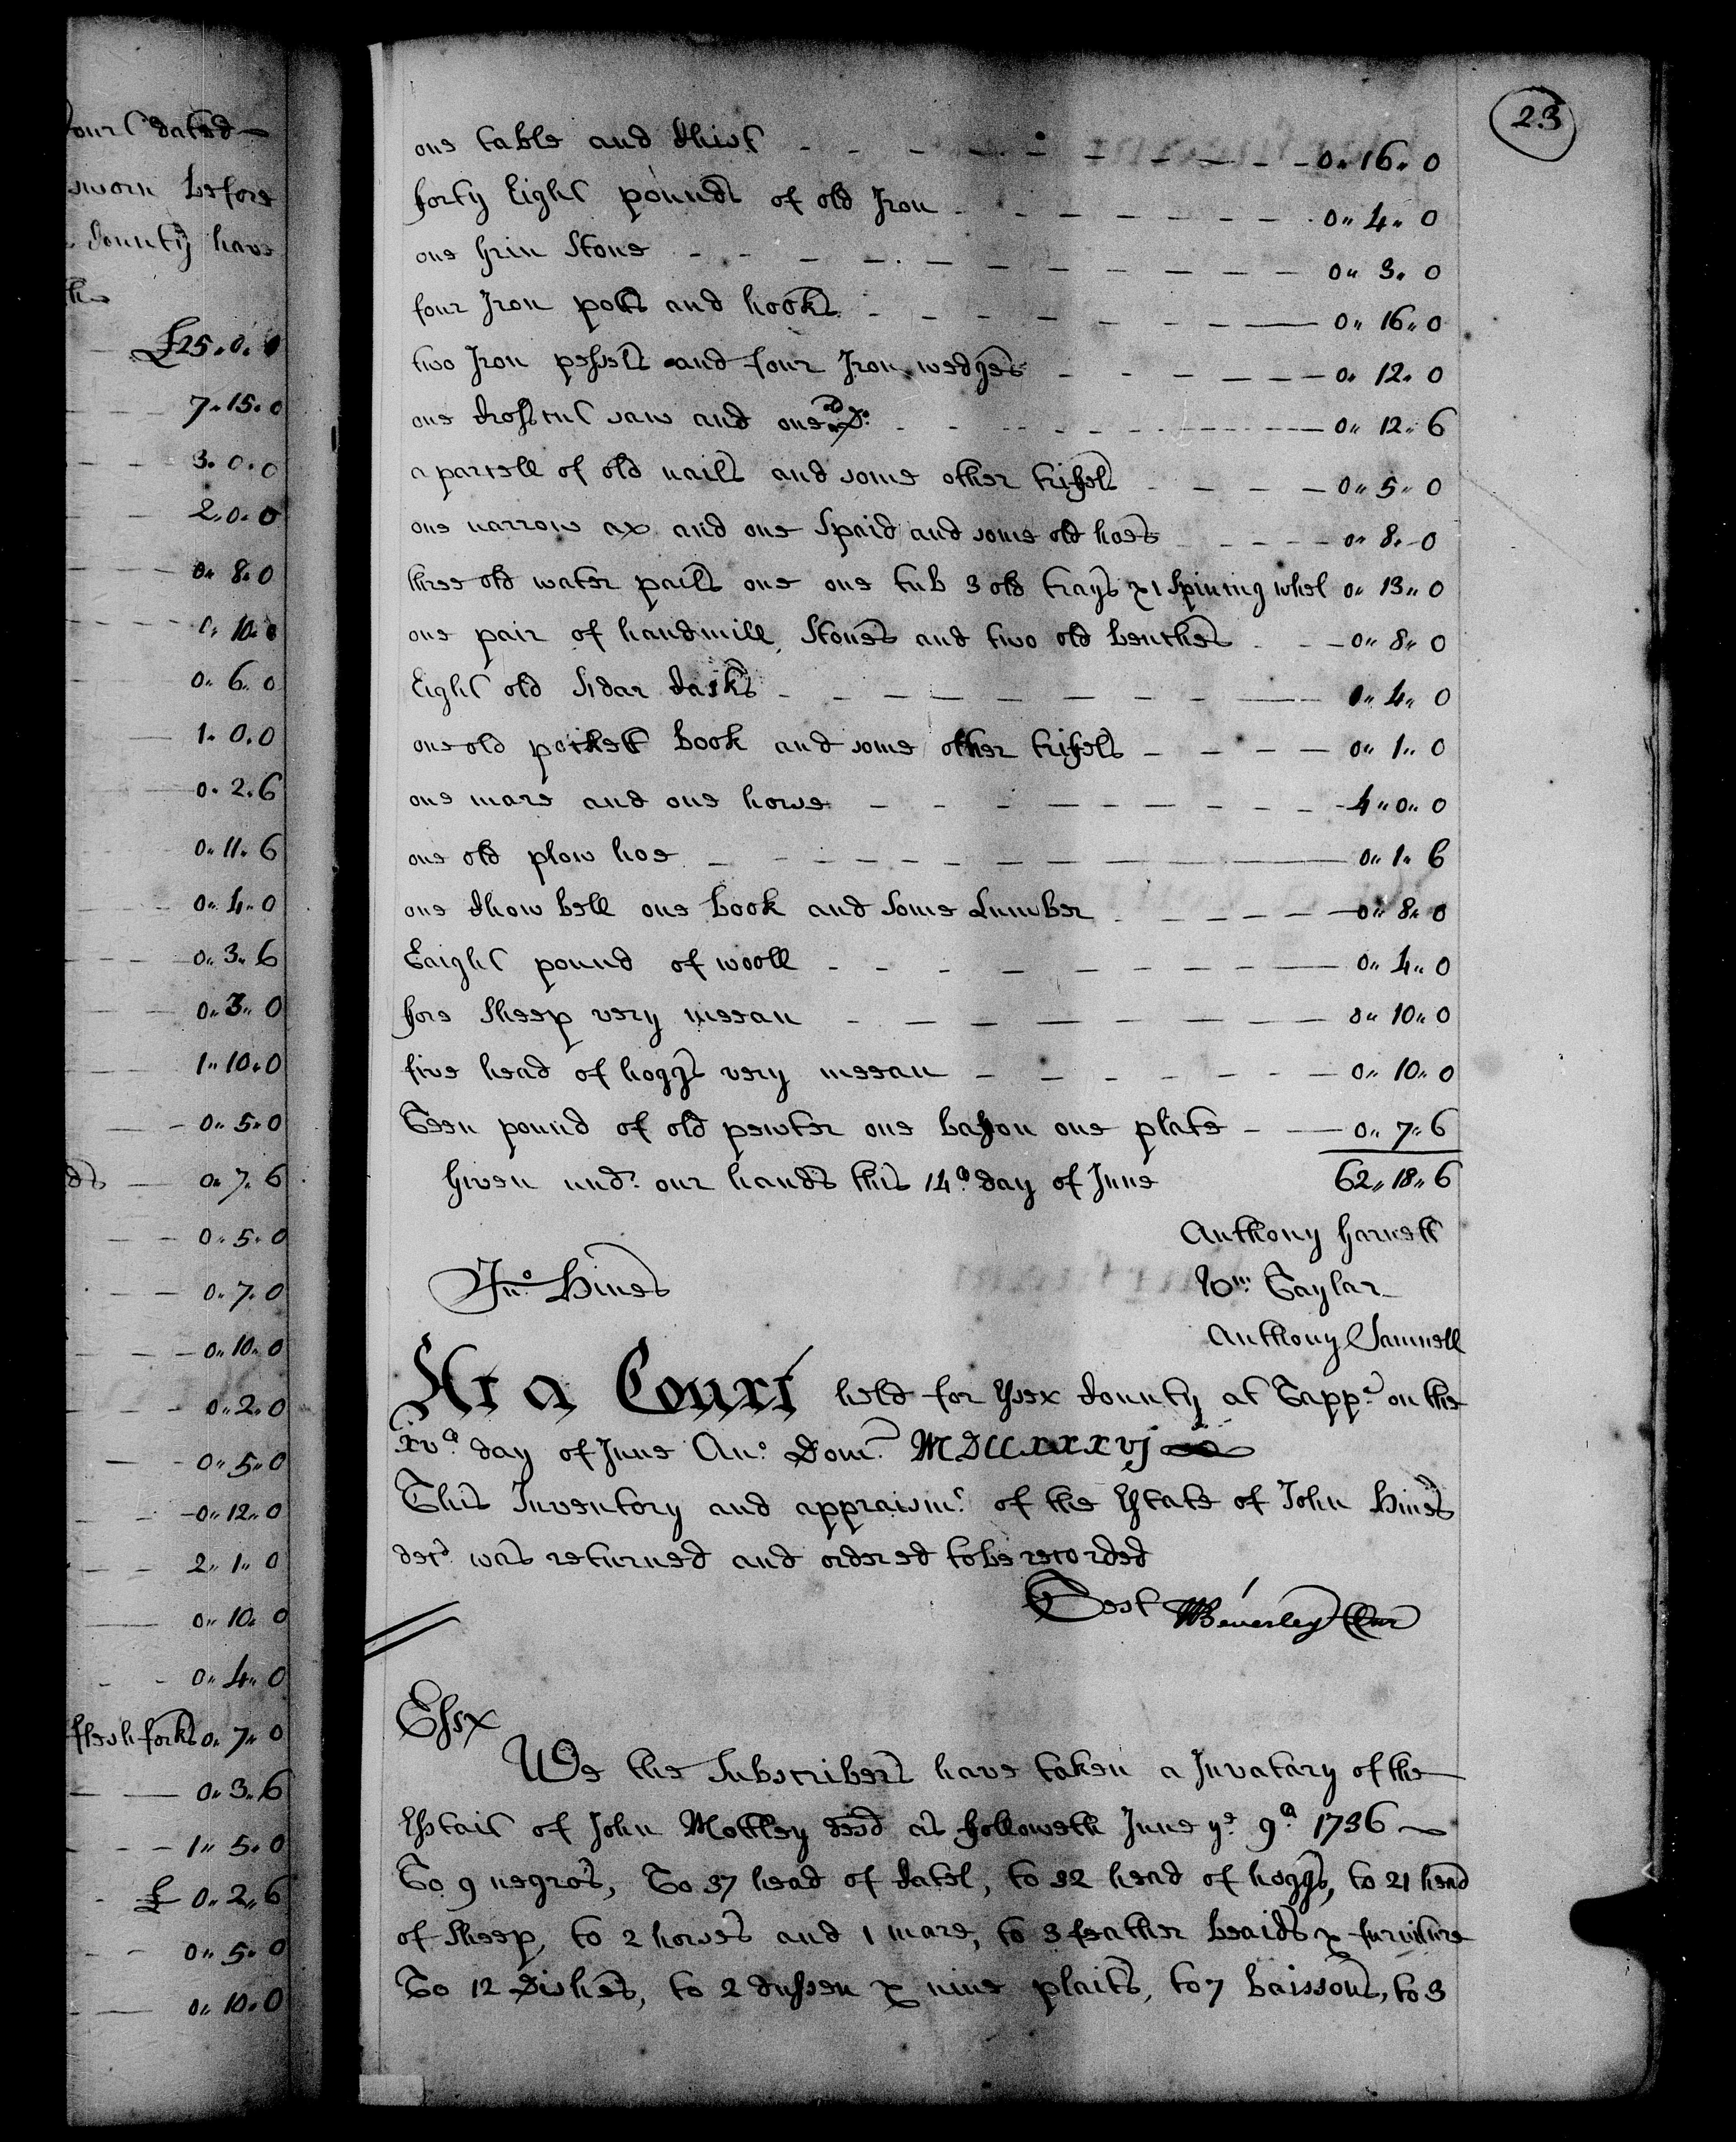 our Dated
sworn before
County have
£25.0.0
7.15.0
3.0.0
2.0.0
0.8.0
0.10.0
0.6.0
1.0.0
0.2.6
0.11.6
0.4.0
0.3.6
0.3.0
1.10.0
0.5.0
ds 0.7.6
0.5.0
0.7.0
0.10.0
0.2.0
0.5.0
0.12.0
2.1.0
0.10.0
0.4.0
flesh forks 0.7.0
0.3.6
1.5.0
£ 0.2.6
0.5.0
0.10.0
23
one table and Chist 0.16.0
forty Eight pounds of old Iron 0.4.0
one Grin Stone 0.3.0
four Iron pots and hooks 0.16.0
two Iron pessels and four Iron wedges 0.12.0
one Crosscut saw and one old Do. 0.12.6
a parcell of old nails and some other trifels 0.5.0
one narrow ax and one Spaid and some old hoes 0.8.0
three old water pails one one tub 3 old trays & 1 Spining whel 0.13.0
one pair of handmill Stones and two old benches 0.8.0
Eight old Sidar Casks 0.4.0
one old pocket book and some other trifels 0.1.0
one mare and one horse 4.0.0
one old plow hoe 0.1.6
one Chow bell one book and some Lumber 0.8.0
Eaight pound of wooll 0.4.0
fore Sheep very meean 0.10.0
five head of hoggs very meean 0.10.0
Teen pound of old pewter one bason one plate 0.7.6
Given undr. our hands this 14th day of June 62.18.6
Anthony Harnett
Jno. Hines Wm. Taylar
Anthony Samuell
At a Court held for Essex County at Tappa. on the
xvth day of June Ano. Dom. MDCCXXXVJ
This Inventory and appraismt. of the Estate of John Hines
decd. was returned and ordered to be recorded
Test WBeverley Cur
Essx
We the Subscribers have taken a Invatary of the
Esstait of John Mottley deed as followeth June ye. 9th 1736
To 9 negro's, To 37 head of Catel, to 32 head of hoggs, to 21 head
of Sheep, to 2 horses and 1 mare, to 3 feather beaids & furniture
To 12 Dishes, to 2 dussen & nine plaits, to 7 baissons, to 3